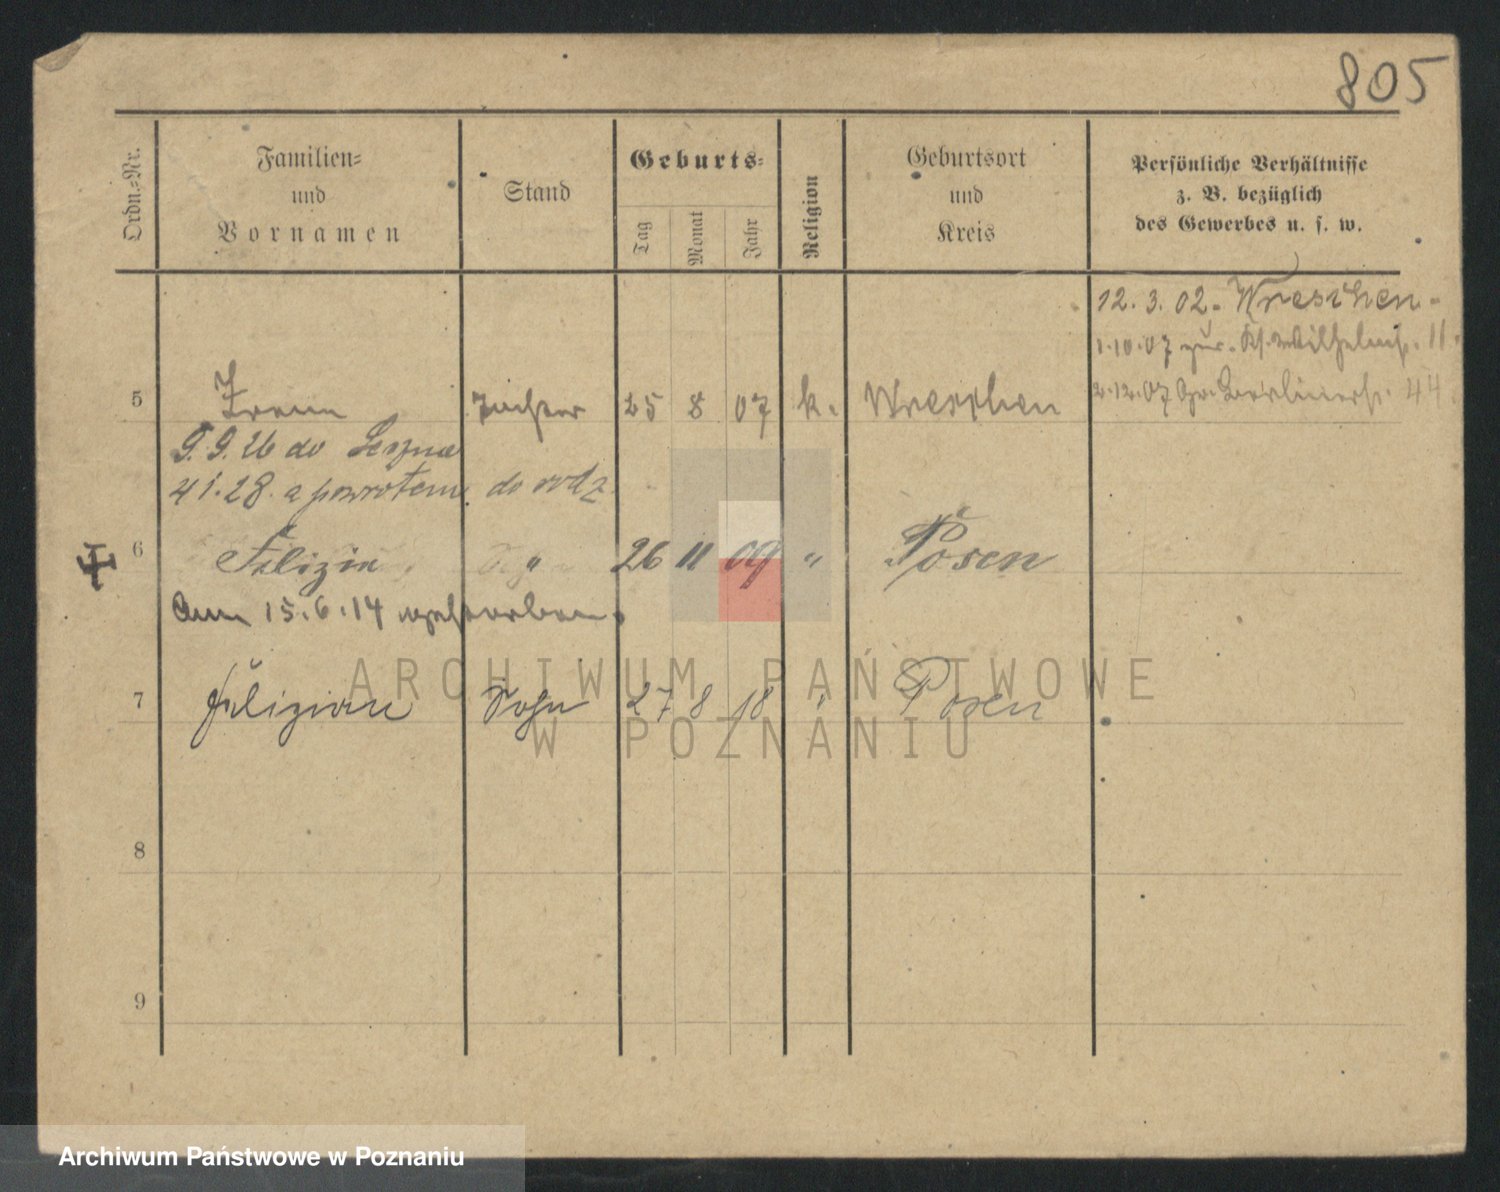 805
Ordn.-Nr.
Familien-
und
Vornamen
Stand
Geburts-
Tag
Monat
Jahr
Religion
Geburtsort
und
Kreis
Persönliche Verhältnisse
z. B. bezüglich
des Gewerbes u. s. w.
12. 3. 02. Wreschen.
1.10.07 zur. Wilhelmstr. 11.
2.12.07 Gr. Berlinerstr. 44
5 Tochter 25 8 07 k. Wreschen
9.9.26 do Leszna
4 1.28. a powrotem do rodz.
6 Felizia " 26 11 09 " Posen
Am 15.6.14 gestorben.
7 Felizian Sohn 27 8 18 " Posen
8
9
ARCHIWUM PAŃSTWOWE
W POZNANIU
Archiwum Państwowe w Poznaniu